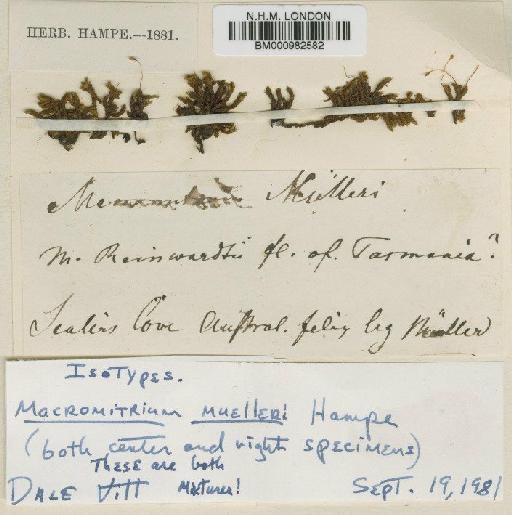 HERB. HAMPE.—1881.
N.H.M. LONDON
BM000982582
Mülleri
M. Reinwardtii fl. of. Tasmania.
Sealers Cove Austral. felix leg Müller
Isotypes.
Macromitrium muelleri Hampe
(both center and right specimens)
These are both
Dale Vitt Mixtures! Sept. 19, 1981